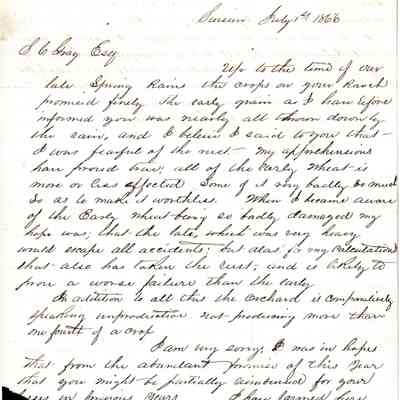 Suisun July 1st 1866
S C Gray Esq
Up to the time of our
late Spring Rains the crops on your Ranch
promised finely the early grain as I have before
informed you was nearly all thrown down by
the rain, and I believe I said to you that
I was fearful of the rust - My apprehensions
have proved true; all of the early wheat is
more or less effected some of it very badly so much
so as to make it worthless. When I became aware
of the Early wheat being so badly damaged my
hope was; that the late, which was very heavy
would escape all accidents; but alas for my calculations
that also has taken the rust; and is likely to
prove a worse failure than the early
In addition to all this the Orchard is comparatively
speaking unproductive not producing more than
one fourth of a crop
I am very sorry; I was in hopes
that from the abundant promise of this Year
that you might be partially reimbursed for your
loss in previous years. I have farmed here